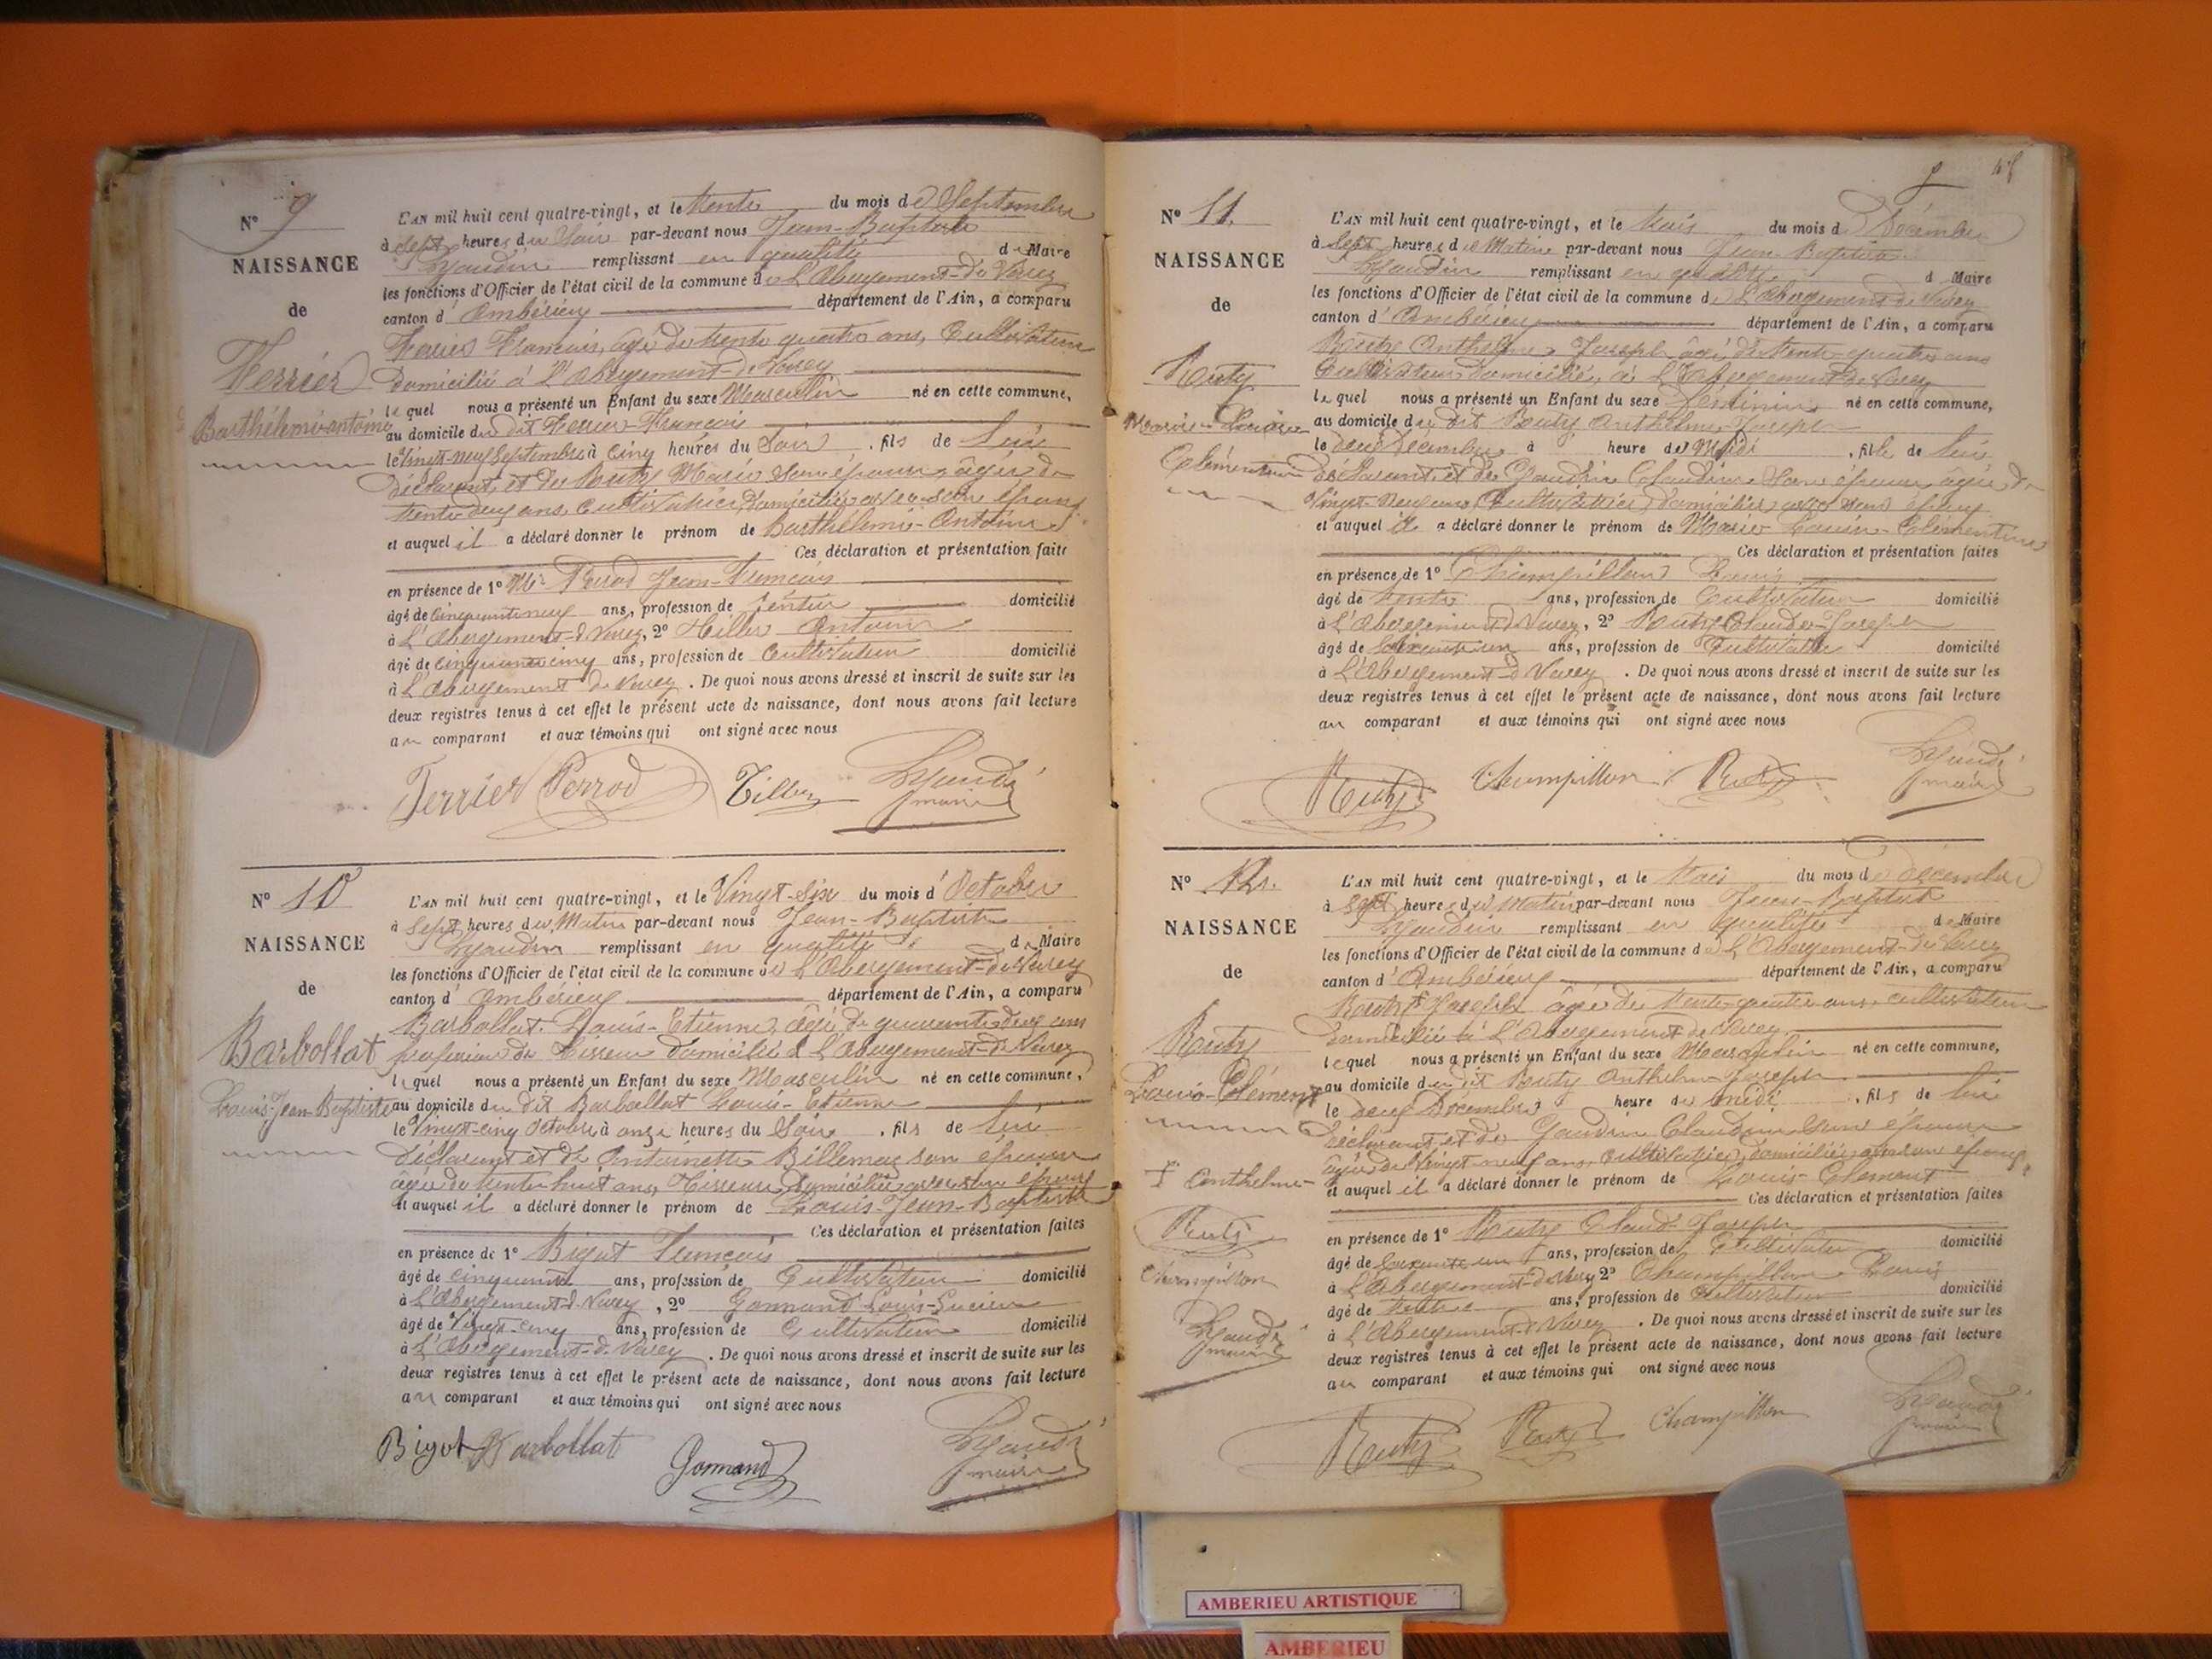 N° 9
NAISSANCE
de
Terrier
Barthélemi-antoine
L'AN mil huit cent quatre-vingt, et le trente du mois de Septembre
à sept heures du Soir par-devant nous Jean-Baptiste
Lyaudin remplissant en qualité de Maire
les fonctions d'Officier de l'état civil de la commune de L'Abergement-de-Varey
canton d'Ambérieu département de l'Ain, a comparu
Terrier Francois, âgé de trente quatre ans, Cultivateur
domicilié à L'Abergement-de-Varey
lequel nous a présenté un Enfant du sexe Masculin né en cette commune,
au domicile du dit Terrier Francois
le Vingt-neuf Septembre à Cinq heures du Soir, fils de lui
déclarant, et de Routy Marie son épouse, âgée de
trente deux ans, Cultivatrice, domiciliée avec son époux
et auquel il a déclaré donner le prénom de Barthélemi-Antoine
Ces déclaration et présentation faites
en présence de 1° Mr Perrod Jean-Francois
âgé de Cinquante neuf ans, profession de rentier domicilié
à L'Abergement-d-Varey, 2° Tiller Antoine
âgé de cinquante cinq ans, profession de Cultivateur domicilié
à L'Abergement de Varey. De quoi nous avons dressé et inscrit de suite sur les
deux registres tenus à cet effet le présent acte de naissance, dont nous avons fait lecture
au comparant et aux témoins qui ont signé avec nous
Terrier Perrod Tiller Lyaudi
maire
N° 10
NAISSANCE
de
Barbollat
Louis-Jean-Baptiste
L'AN mil huit cent quatre-vingt, et le Vingt-Six du mois d'Octobre
à Sept heures du Matin par-devant nous Jean-Baptiste
Lyaudin remplissant en qualité de Maire
les fonctions d'Officier de l'état civil de la commune de L'Abergement-de-Varey
canton d'Ambérieu département de l'Ain, a comparu
Barbollat Louis-Etienne, âgé de quarante deux ans
profession de Tisseur domicilié à L'Abergement-de-Varey
lequel nous a présenté un Enfant du sexe Masculin né en cette commune,
au domicile du dit Barbollat Louis-Etienne
le Vingt-cinq Octobre à onze heures du Soir, fils de lui
déclarant et de Antoinette Billemaz son épouse
âgée de trente huit ans, Tisseuse, domiciliée avec son époux
et auquel il a déclaré donner le prénom de Louis-Jean-Baptiste
Ces déclaration et présentation faites
en présence de 1° Bigot Francois
âgé de cinquante ans, profession de Cultivateur domicilié
à L'Abergement-d-Varey, 2° Gonnand Louis-Lucien
âgé de Vingt-cinq ans, profession de Cultivateur domicilié
à L'Abergement-d-Varey. De quoi nous avons dressé et inscrit de suite sur les
deux registres tenus à cet effet le présent acte de naissance, dont nous avons fait lecture
au comparant et aux témoins qui ont signé avec nous
Bigot Barbollat Gonnand Lyaudi
maire
N° 11.
NAISSANCE
de
Routy
Marie-Louise
Clémentine
L'AN mil huit cent quatre-vingt, et le trois du mois de Décembre
à Sept heures du Matin par-devant nous Jean-Baptiste
Lyaudin remplissant en qualité de Maire
les fonctions d'Officier de l'état civil de la commune de L'Abergement de Varey
canton d'Ambérieu département de l'Ain, a comparu
Routy Anthelme Joseph âgé de trente-quatre ans
Cultivateur domicilié à L'Abergement de Varey
lequel nous a présenté un Enfant du sexe Féminin né en cette commune,
au domicile du dit Routy Anthelme Joseph
le deux Décembre à heure de Midi, fille de lui
déclarant, et de Gaudin Claudine son épouse âgée de
Vingt-neuf ans, Cultivatrice, domiciliée avec son époux
et auquel il a déclaré donner le prénom de Marie Louise-Clémentine
Ces déclaration et présentation faites
en présence de 1° Champillon Louis
âgé de trente ans, profession de Cultivateur domicilié
à L'Abergement de Varey, 2° Routy Claude-Joseph
âgé de ans, profession de Cultivateur domicilié
à L'Abergement-d-Varey. De quoi nous avons dressé et inscrit de suite sur les
deux registres tenus à cet effet le présent acte de naissance, dont nous avons fait lecture
au comparant et aux témoins qui ont signé avec nous
Routy Champillon Routy Lyaudi
maire
N° 12.
NAISSANCE
de
Routy
Louis-Clément
Anthelme-
Routy
Champillon
Lyaudi
maire
L'AN mil huit cent quatre-vingt, et le trois du mois de Décembre
à sept heures du Matin par-devant nous Jean-Baptiste
Lyaudin remplissant en qualité de Maire
les fonctions d'Officier de l'état civil de la commune de L'Abergement-de-Varey
canton d'Ambérieu département de l'Ain, a comparu
Routy Joseph âgé de trente-quatre ans, cultivateur
domicilié à L'Abergement de Varey
lequel nous a présenté un Enfant du sexe Masculin né en cette commune,
au domicile du dit Routy Anthelme Joseph
le deux Décembre à heure de midi, fils de lui
déclarant, et de Gaudin Claudine son épouse
âgée de Vingt neuf ans, cultivatrice, domiciliée avec son époux
et auquel il a déclaré donner le prénom de Louis-Clément
Ces déclaration et présentation faites
en présence de 1° Routy Claude-Joseph
âgé de ans, profession de Cultivateur domicilié
à L'Abergement-de-Varey 2° Champillon Louis
âgé de trente ans, profession de Cultivateur domicilié
à L'Abergement-d-Varey. De quoi nous avons dressé et inscrit de suite sur les
deux registres tenus à cet effet le présent acte de naissance, dont nous avons fait lecture
au comparant et aux témoins qui ont signé avec nous
Routy Routy Champillon Lyaudi
maire
AMBERIEU ARTISTIQUE
AMBERIEU